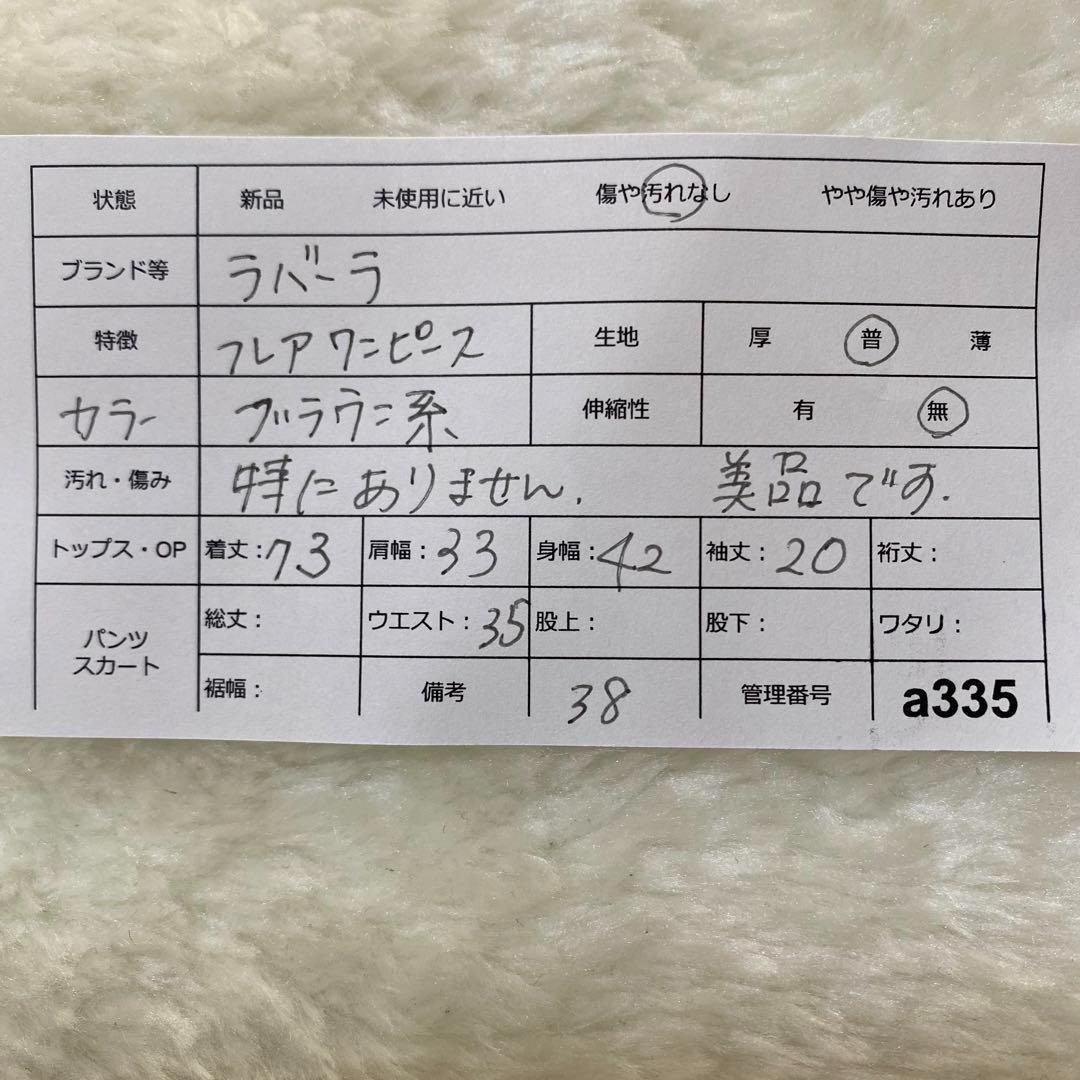 状態 新品 未使用に近い 傷や汚れなし やや傷や汚れあり
ブランド等 ラバーラ
特徴 フレアワンピース 生地 厚 普 薄
カラー ブラウン系 伸縮性 有 無
汚れ・傷み 特にありません. 美品です.
トップス・OP 着丈：73 肩幅：33 身幅：42 袖丈：20 裄丈：
パンツ スカート 総丈： ウエスト：35 股上： 股下： ワタリ：
裾幅： 備考 38 管理番号 a335